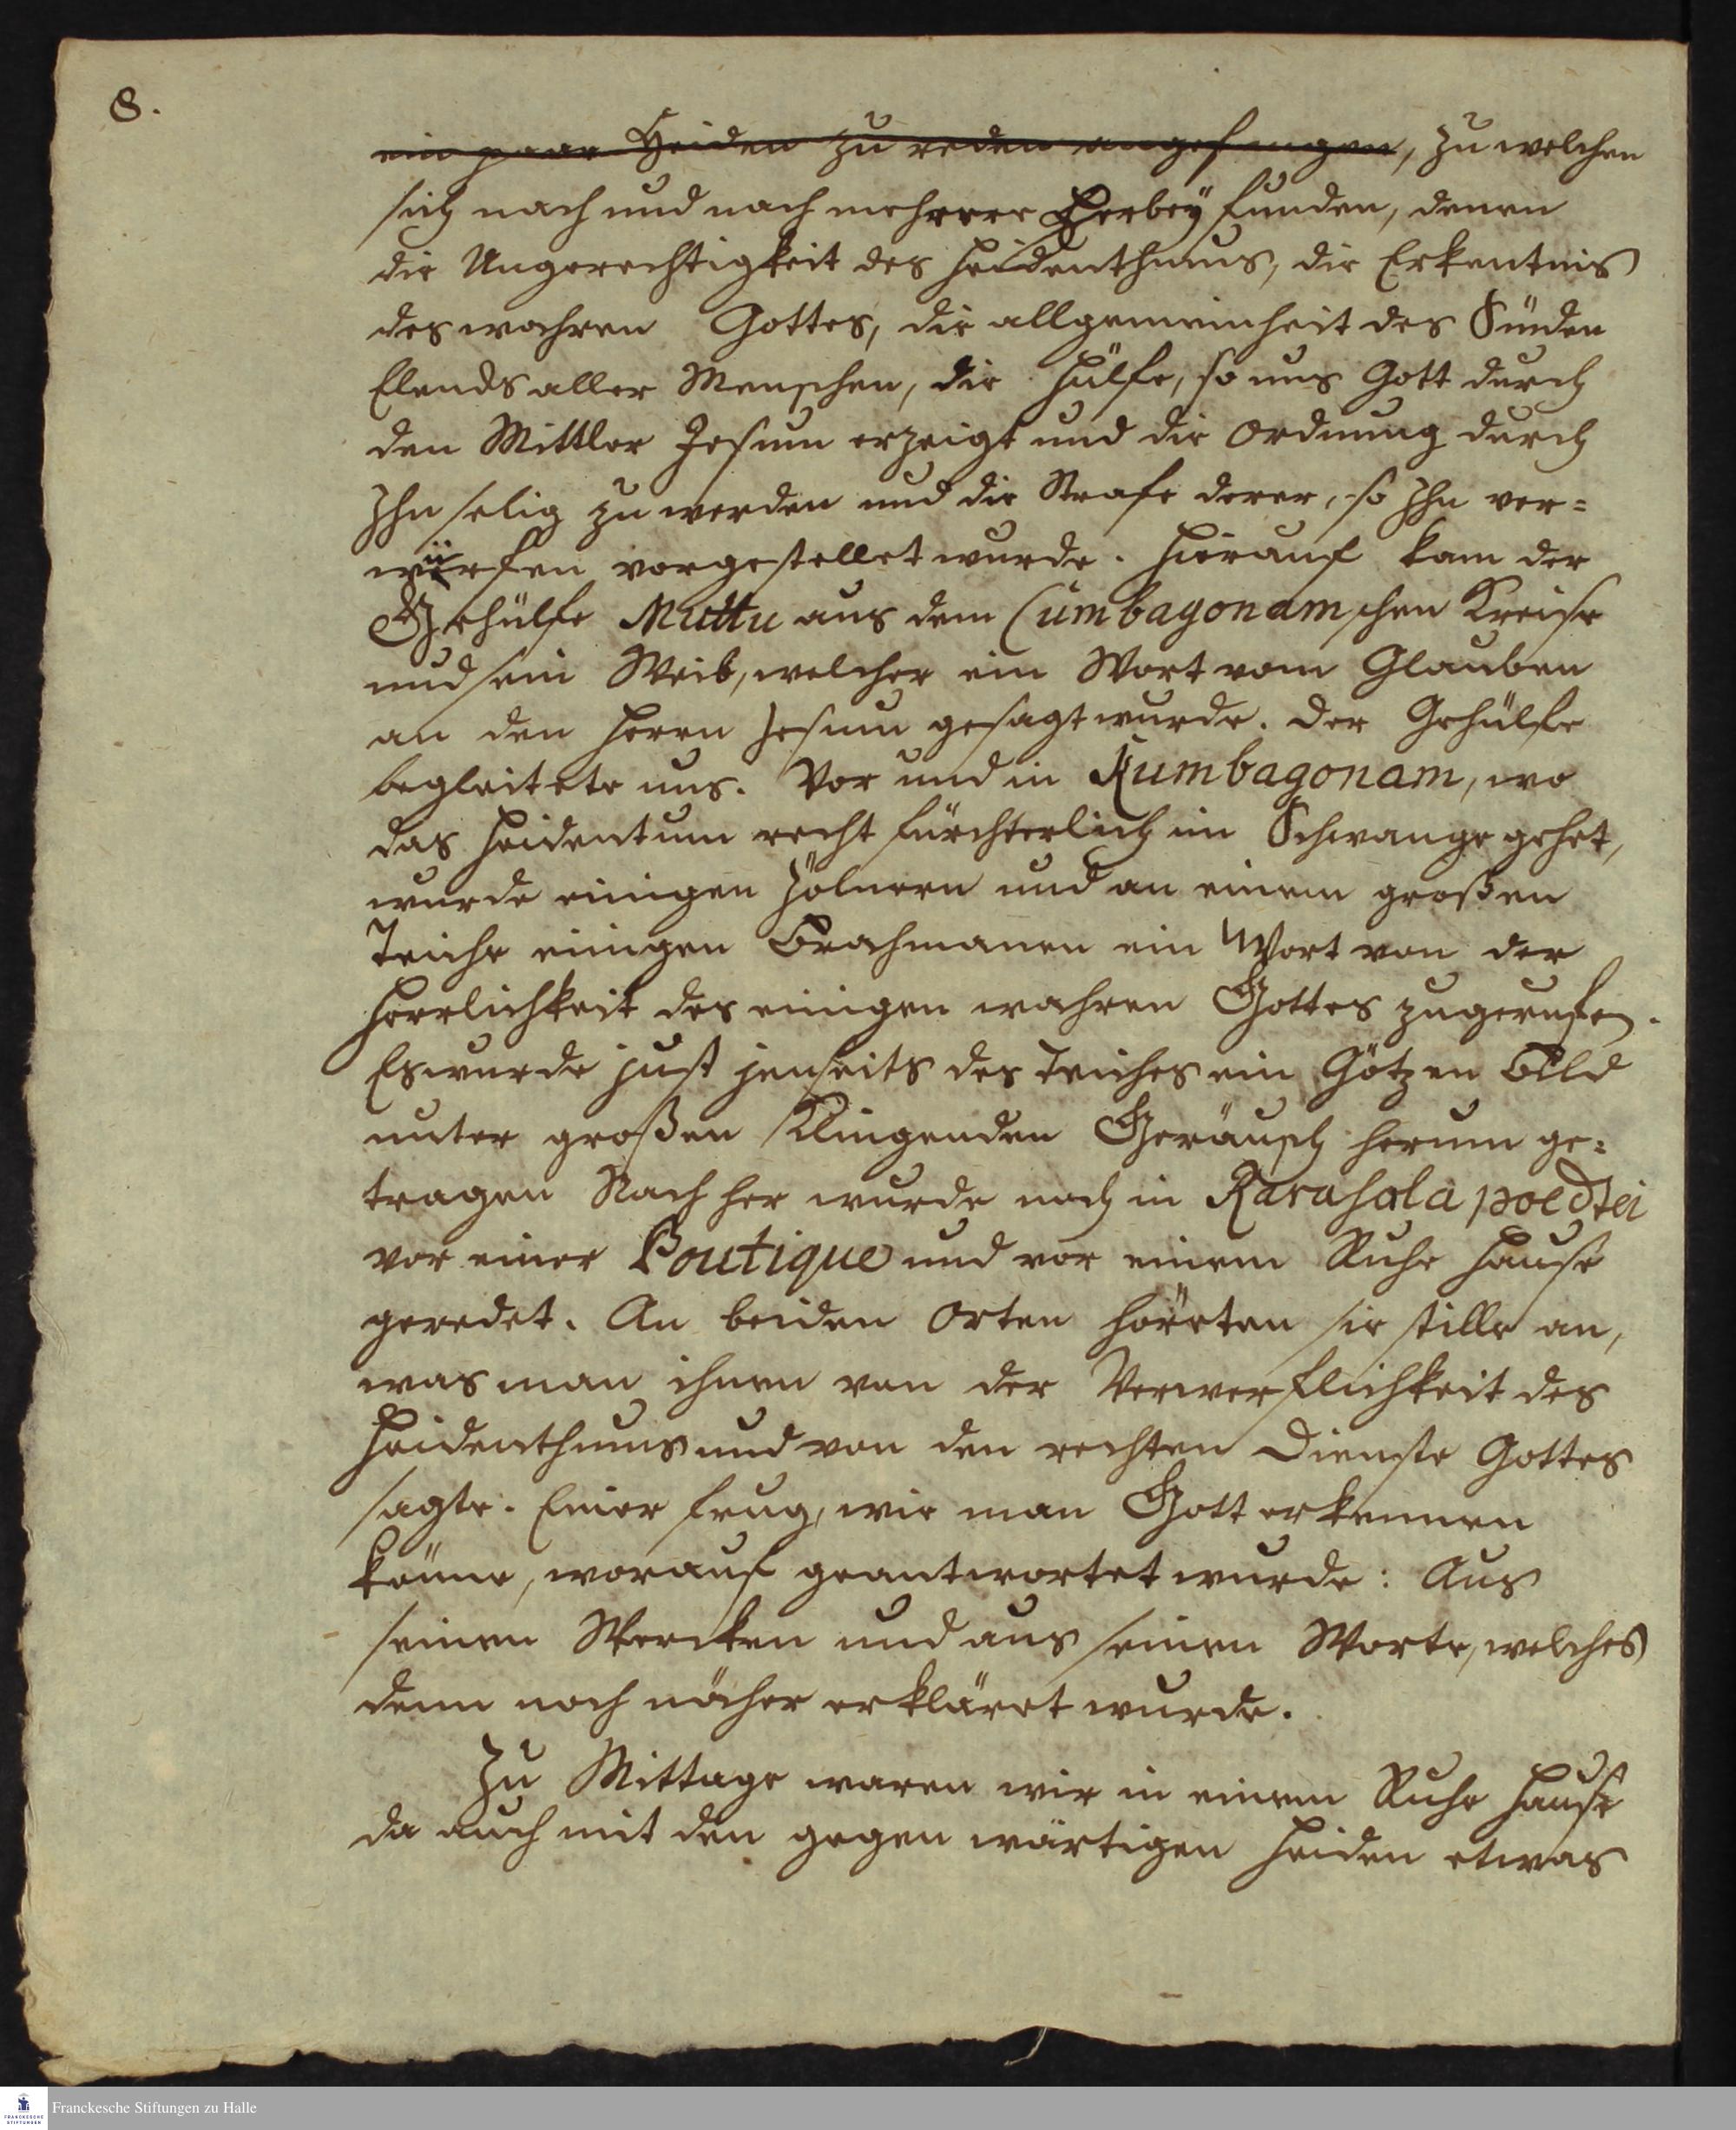 8.
ein paar Heiden zu reden angefangen, zu welchen
sich nach und nach mehrere herbeÿ funden, denen
die Ungerechtigkeit des Heidenthums, die Erkentnis
des wahren Gottes, die allgemeinheit des Sünden
Elends aller Menschen, die Hülfe, so uns Gott durch
den Mittler Jesum erzeigt und die Ordnung durch
Ihn selig zu werden und die Strafe derer, so Ihn ver=
würfen vorgestellet wurde. Hierauf kam der
Gehülfe Muttu aus dem Cumbagonamschen Kreise
und sein Weib, welcher ein Wort vom Glauben
an den Herrn Jesum gesagt wurde. Der Gehülfe
begleitete uns. Vor und in Kumbagonam, wo
das Heidentum recht fürchterlich im Schwange gehet,
wurde einigen Zölnern und an einem großen
Teiche einigen Brahmanen ein Wort von der
Herrlichkeit des einigen wahren Gottes zugerufen.
Es wurde just jenseits des Teiches ein Götzen Bild
unter großen Klingenden Geräusch herum ge=
tragen Nach her wurde noch in
vor einer Boutique und vor einem Ruhe Hause
geredet. An beiden Orten hörten sie stille an,
was man ihnen von der Verwerflichkeit des
Heidenthums und von den rechten Dienste Gottes
sagte. Einer frug, wie man Gott erkennen
könne, worauf geantwortet wurde: Aus
seinen Wercken und aus seinen Worte, welches
denn noch näher erkläret wurde.
Zu Mittage waren wir in einem Ruhe Hause
da auch mit den gegen wärtigen Heiden etwas
Franckesche Stiftungen zu Halle
FRANCKESCHE
STIFTUNGEN